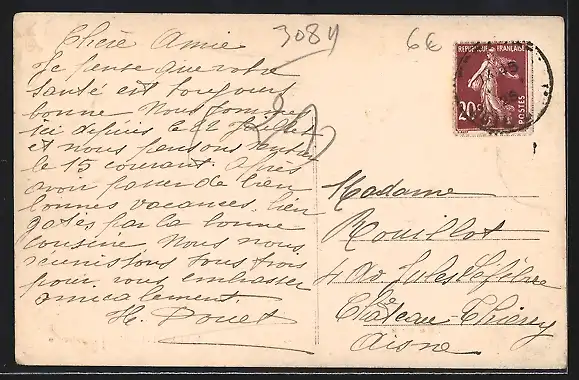 3084
6€
Chère Amie
Je pense que votre
santé est toujours
bonne. Nous sommes
ici depuis le 22 Juillet
et nous pensons rentrer
le 15 courant. Après
avoir passer de bien
bonnes vacances, bien
gatés par la bonne
cousine. Nous nous
réunissons tous trois
pour vous embrasser
amicalement.
H. Douet
REPUBLIQUE FRANÇAISE
20c
POSTES
Madame
Rouillot
4 Av Jules Lefèbvre
Château-Thierry
Aisne